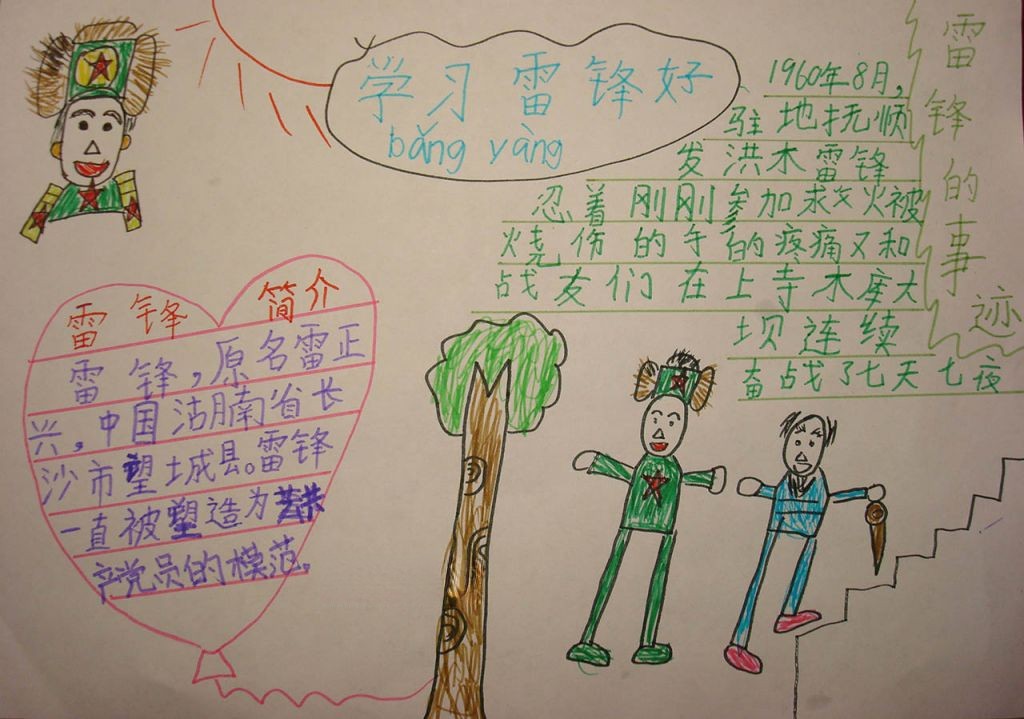 学习雷锋好
bǎng yàng
雷锋的事迹
1960年8月,
驻地抚顺
发洪木雷锋
忍着刚刚参加求火被
烧伤的手的疼痛又和
战友们在上寺木库大
坝连续
奋战了七天七夜
雷锋简介
雷锋,原名雷正
兴,中国沽腩省长
沙市望城县。雷锋
一直被塑造为共
产党员的模范。